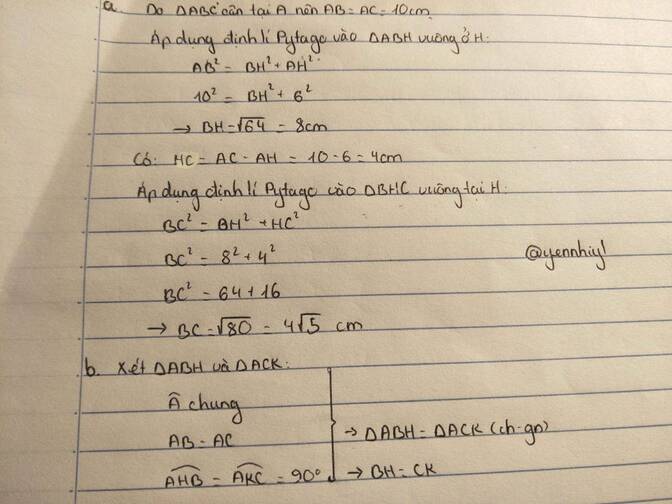 a Do ΔABC cân tại A nên AB = AC = 10cm
Áp dụng định lí Pytago vào ΔABH vuông ở H:
AB² = BH² + AH²
10² = BH² + 6²
→ BH = √64 = 8cm
Có: HC = AC - AH = 10 - 6 = 4cm
Áp dụng định lí Pytago vào ΔBHC vuông tại H:
BC² = BH² + HC²
BC² = 8² + 4²
@yennhiy1
BC² = 64 + 16
→ BC = √80 = 4√5 cm
b. Xét ΔABH và ΔACK:
Â chung
AB = AC → ΔABH = ΔACK (ch-gn)
AHB = AKC = 90° → BH = CK